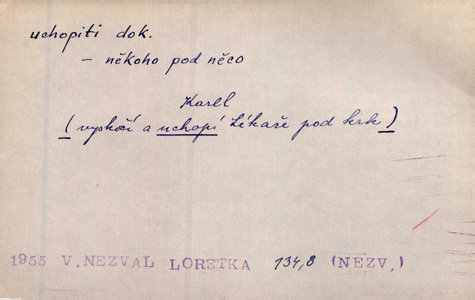 uchopiti dok.
– někoho pod něco
Karel
(vyskočí a uchopí Lékaře pod krk)
1955 V. NEZVAL LORETKA 134,8 (NEZV.)